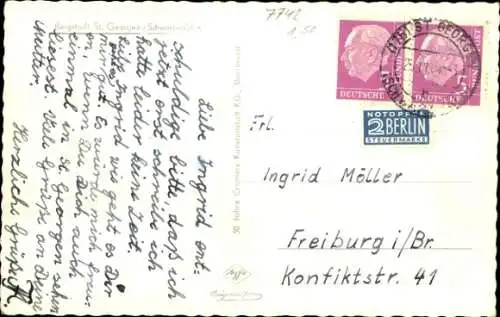 Bergstadt St. Georgen / Schwarzwald
7742
1,50
Liebe Ingrid ent-
schuldige bitte, daß ich
jetzt erst schreibe ich
hatte leider keine Zeit
Ingrid wie geht es Dir
es würde mich freu-
en, wenn Du Dich auch
einmal in St. Georgen sehen
liesest. Viele Grüße an Deine
Mutter.
Herzliche Grüße
50 Jahre Gramers Kunstanstalt K.G., Dortmund
DEUTSCHE
DEUTSCHE
NOTOPFER
2 BERLIN
STEUERMARKE
Frl.
Ingrid Möller
Freiburg i/Br.
Konfiktstr. 41
Agfa